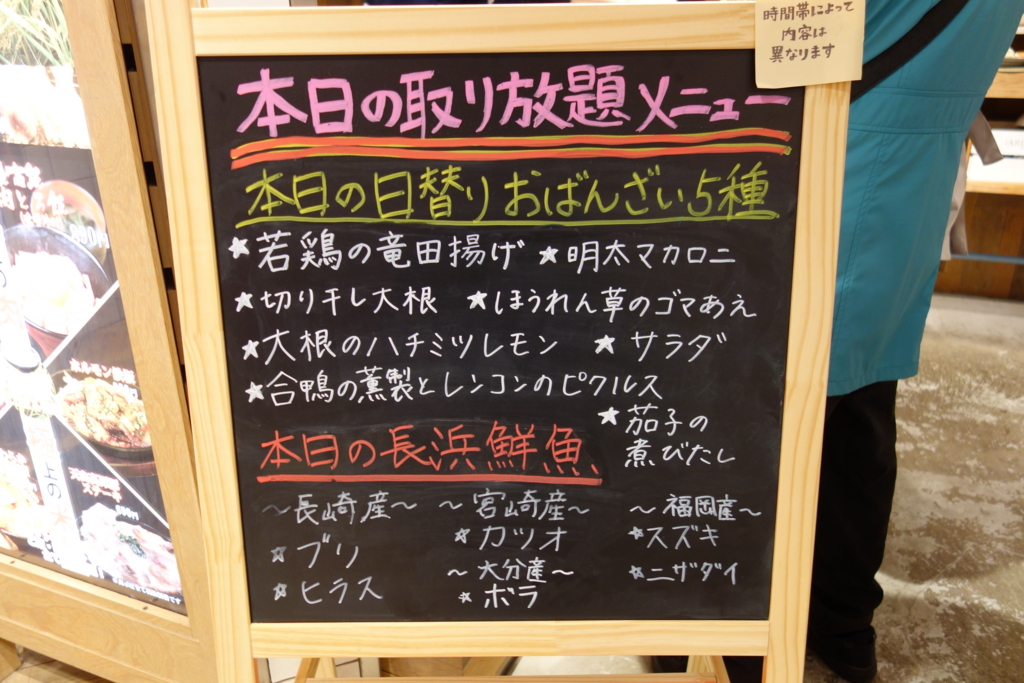 時間帯によって
内容は
異なります
本日の取り放題メニュー
本日の日替りおばんざい5種
★若鶏の竜田揚げ ★明太マカロニ
★切り干し大根 ★ほうれん草のゴマあえ
★大根のハチミツレモン ★サラダ
★合鴨の薫製とレンコンのピクルス
★茄子の
煮びたし
本日の長浜鮮魚
～長崎産～
☆ブリ
☆ヒラス
～宮崎産～
☆カツオ
～大分産～
☆ボラ
～福岡産～
☆スズキ
☆ニザダイ